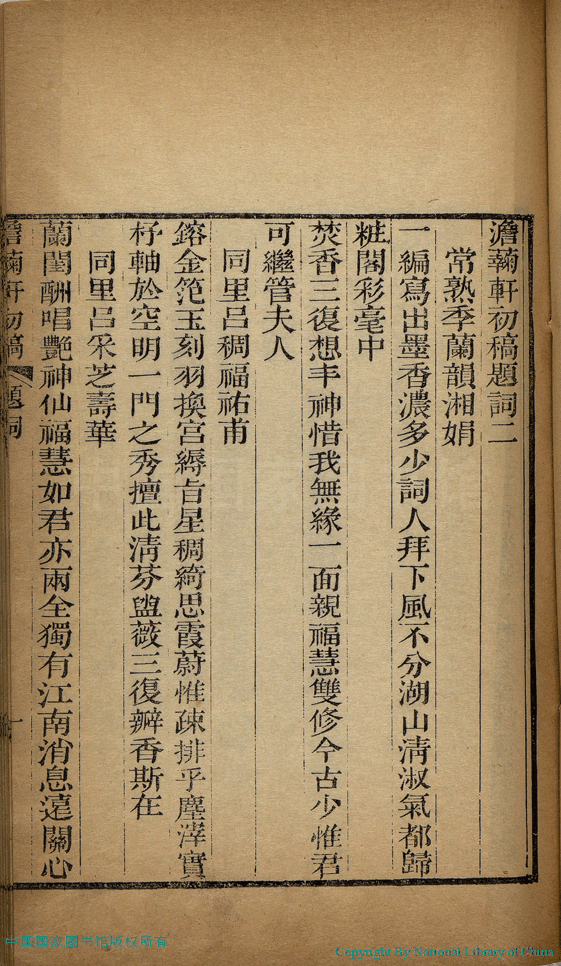 澹蘜軒初稿題詞二
常熟季蘭韻湘娟
一編寫出墨香濃多少詞人拜下風不分湖山淸淑氣都歸
粧閣彩毫中
焚香三復想丰神惜我無緣一面親福慧雙修今古少惟君
可繼管夫人
同里呂稠福祐甫
鎔金笵玉刻羽換宮縟旨星稠綺思霞蔚惟疎排乎塵滓實
杼軸於空明一門之秀擅此淸芬盥薇三復辦香斯在
同里呂采芝壽華
蘭閨酬唱艷神仙福慧如君亦兩全獨有江南消息遠關心
澹蘜軒初稿 題詞 一
中国国家图书馆版权所有
Copyright By National Library of China